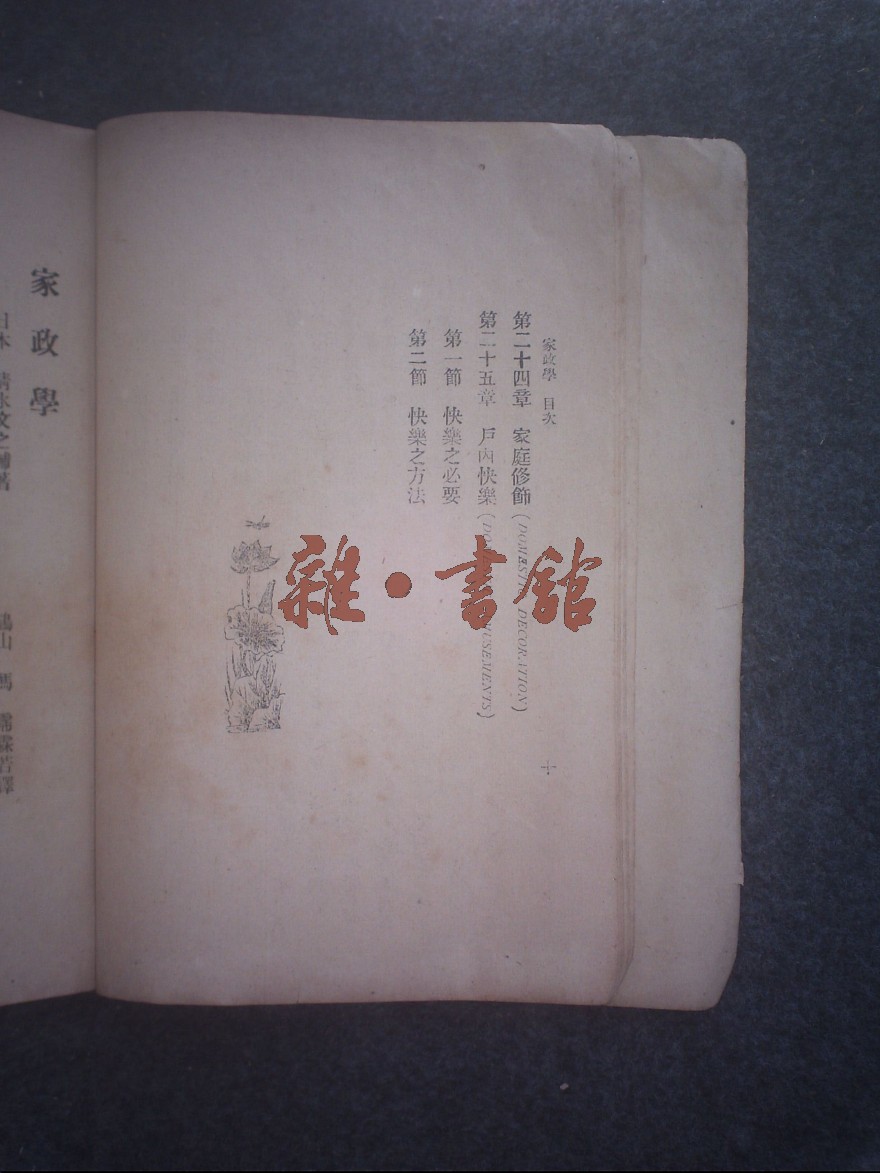 家政學 目次
第二十四章 家庭修飾 (DOMESTIC DECORATION)
第二十五章 戶內快樂 (DO USEMENTS)
第一節 快樂之必要
第二節 快樂之方法
十
雜·書館
家政學
日本 清水文之輔著
山 馮 霈 譯